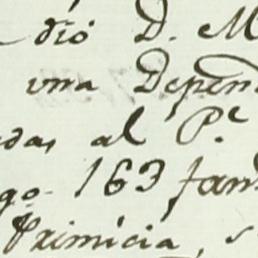 dió D. M
una Depen
das al P.e
go. 163 fan
Primicia, s